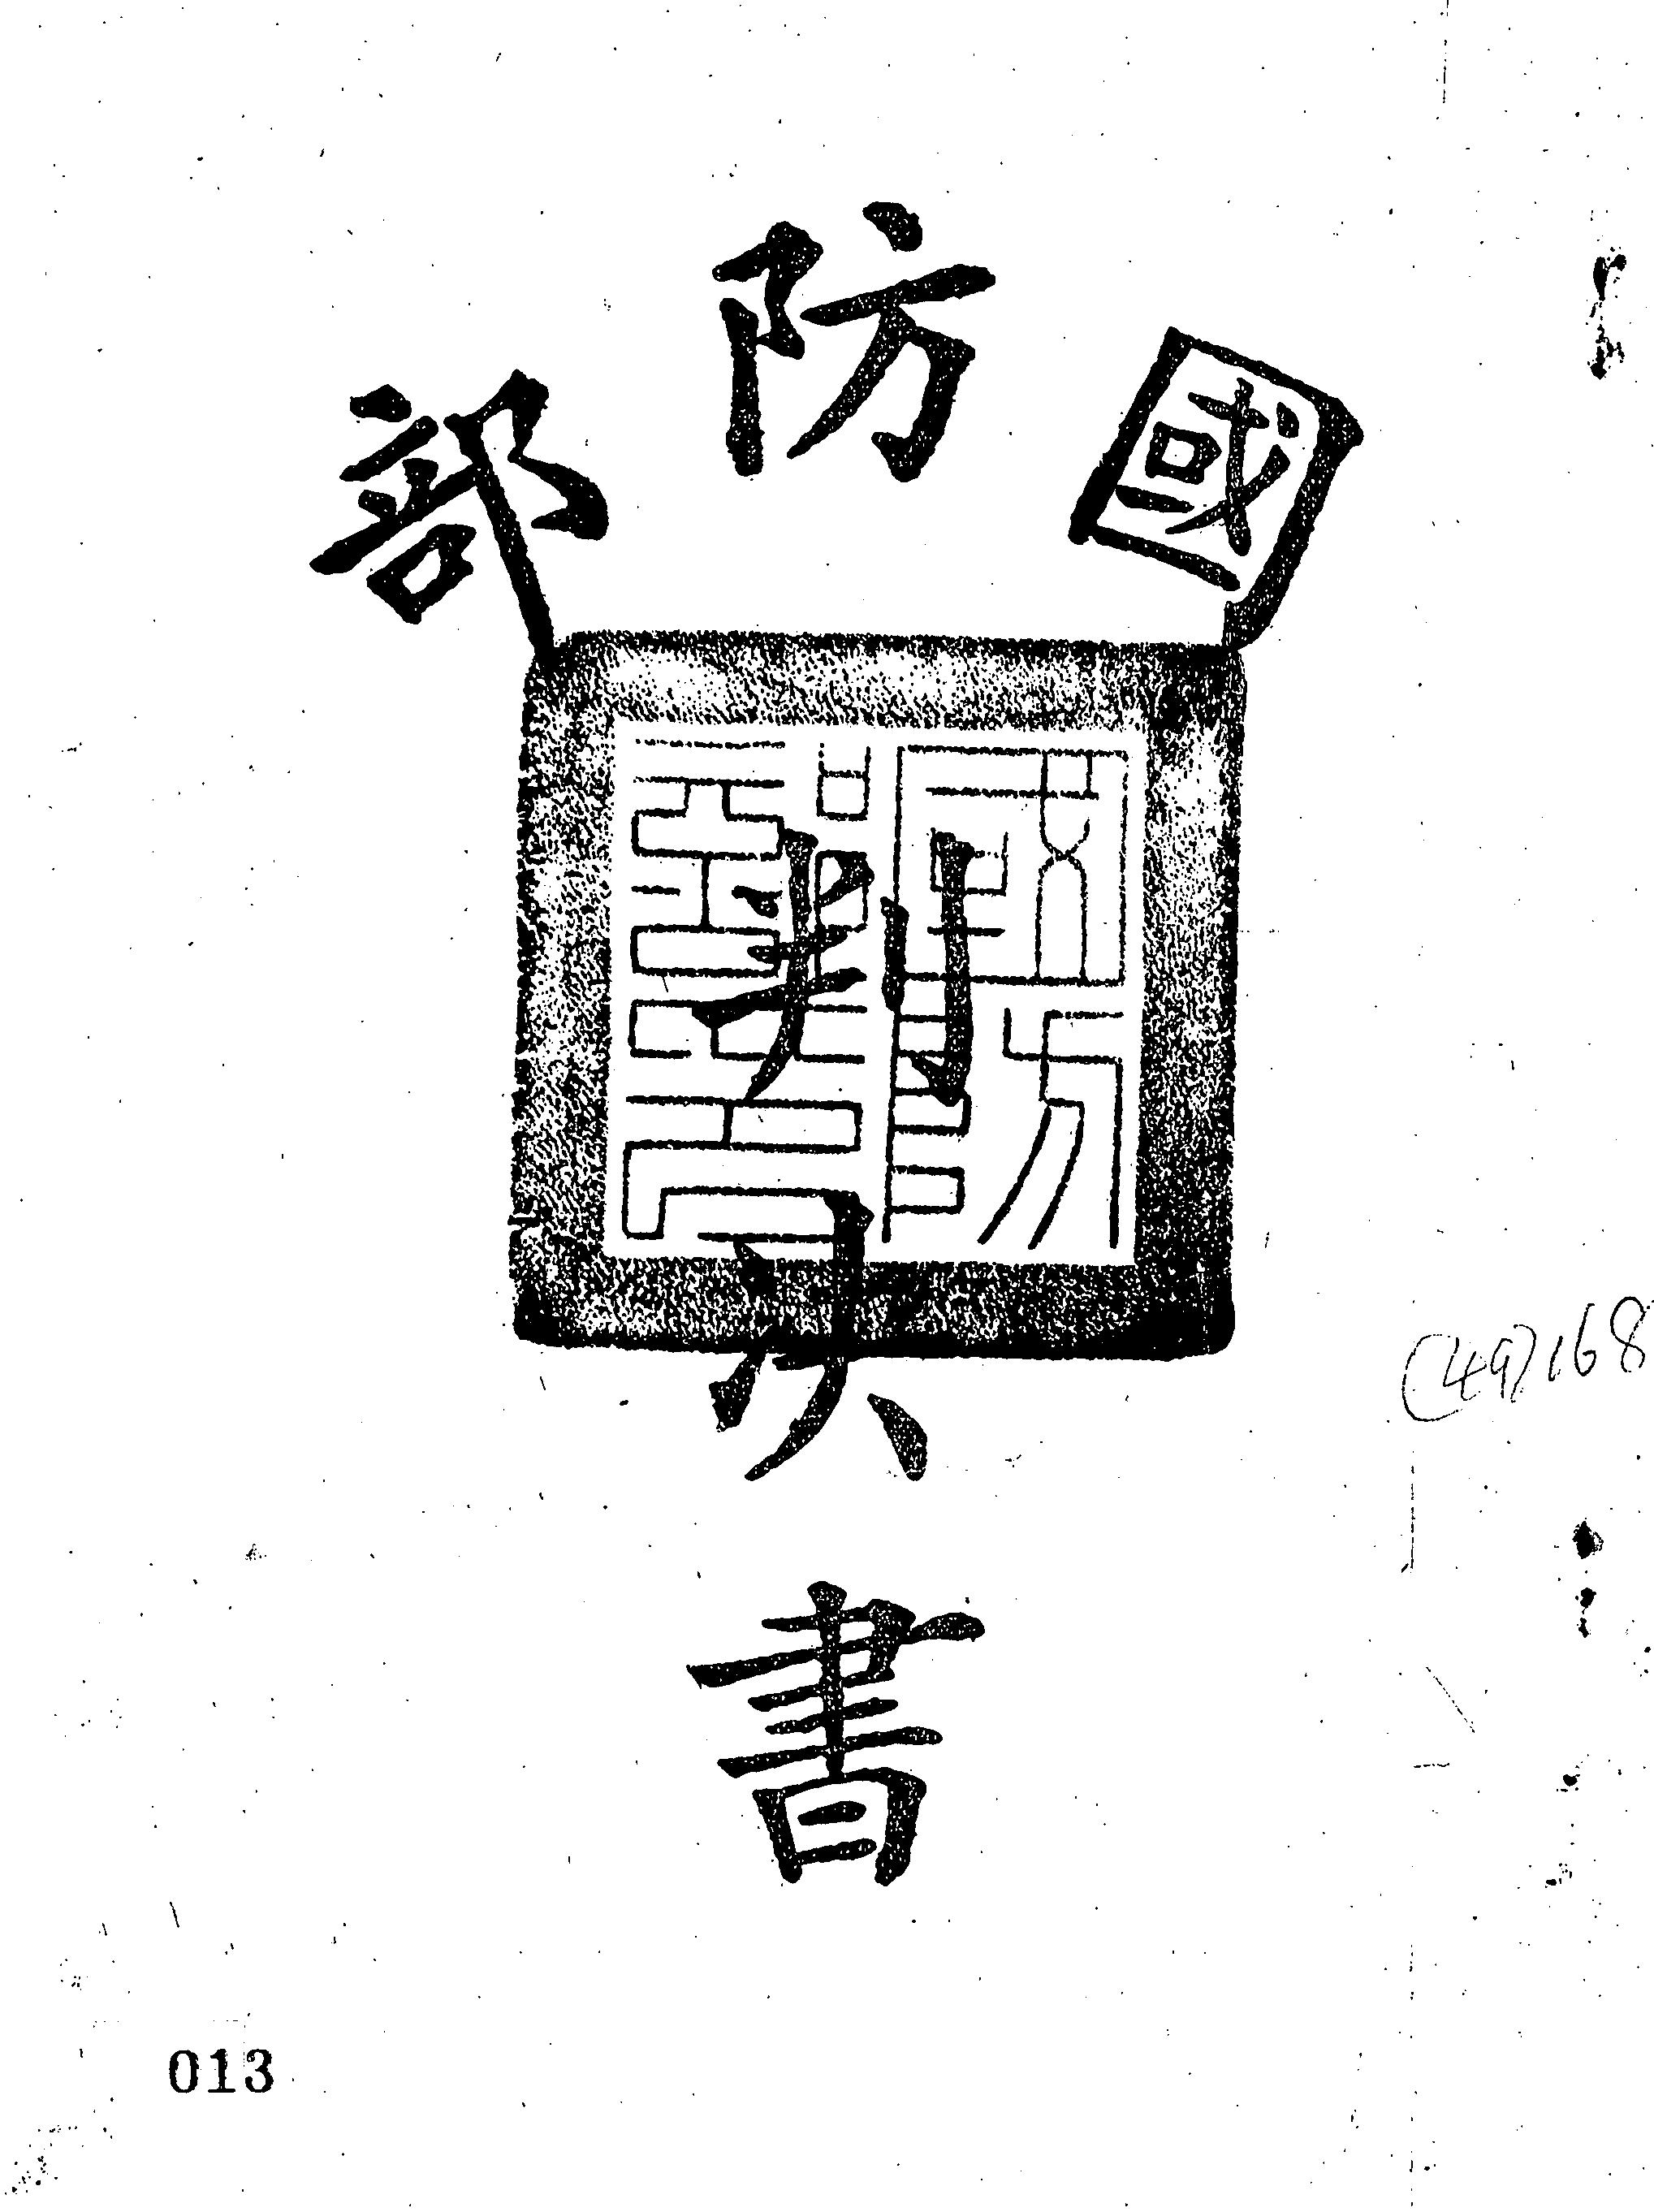 國防部
判決書
國防部印
(49)168
013